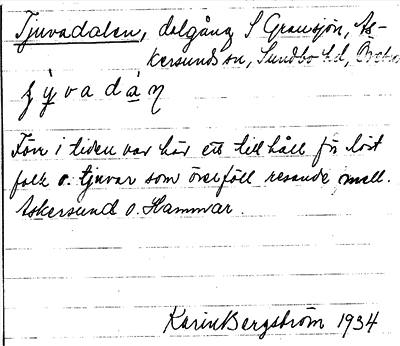 Tjuvadalen, dalgång S Gransjön, As-
kersunds sn, Sundbo hd,
Förr i tiden var här ett till håll för löst
folk o. tjuvar som överföll resande mell.
Askersund o. Hammar.
Karin Bergström 1934